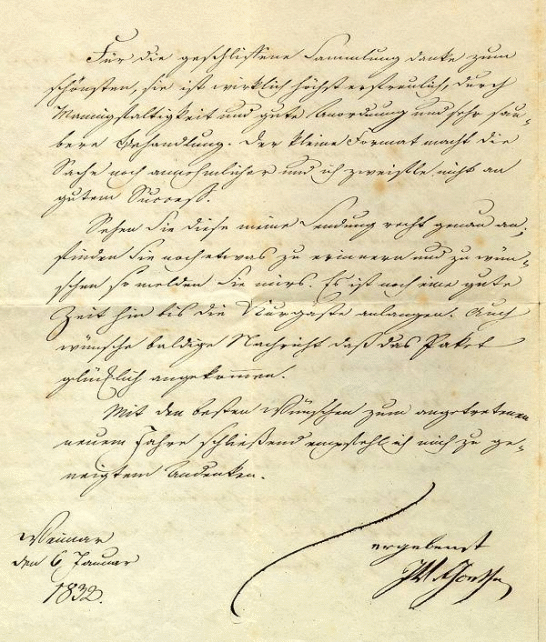 Für die geschliffene Sammlung danke zum
schönsten, sie ist wirklich höchst erfreulich, durch
Mannigfaltigkeit und gute Anordnung und sehr sau-
bere Behandlung. Der kleine Format macht die
Sache noch annehmlicher und ich zweifle nicht an
gutem Success.
Sehen Sie diese meine Sendung recht genau an,
finden Sie noch etwas zu erinnern und zu wün-
schen so melden Sie mirs. Es ist noch eine gute
Zeit hin bis die Kurgäste anlangen. Auch
wünsche baldige Nachricht daß das Paket
glücklich angekommen.
Mit den besten Wünschen zum angetretenen
neuem Jahre schließend empfehl ich mich zu ge-
neigtem Andenken.
Weimar
den 6. Januar
1832.
ergebenst
JW Goethe